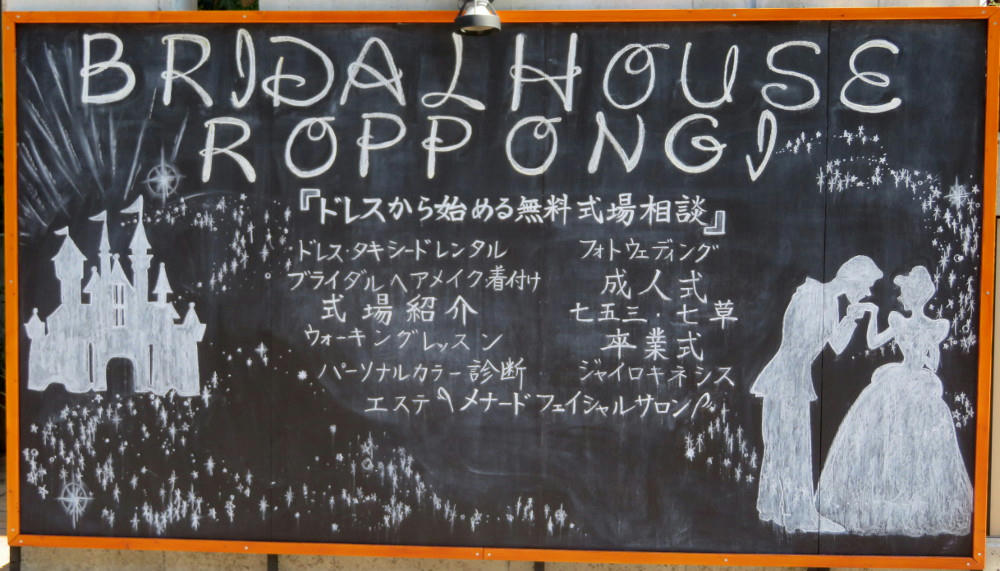 BRIDAL HOUSE
ROPPONGI
『ドレスから始める無料式場相談』
ドレス・タキシードレンタル
ブライダルヘアメイク・着付け
式場紹介
ウォーキングレッスン
パーソナルカラー診断
フォトウェディング
成人式
七五三・七草
卒業式
ジャイロキネシス
エステ〈メナードフェイシャルサロン〉